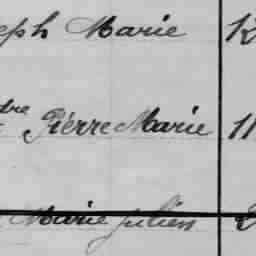 eph Marie K
dre Pierre Marie 11
Marie Julien